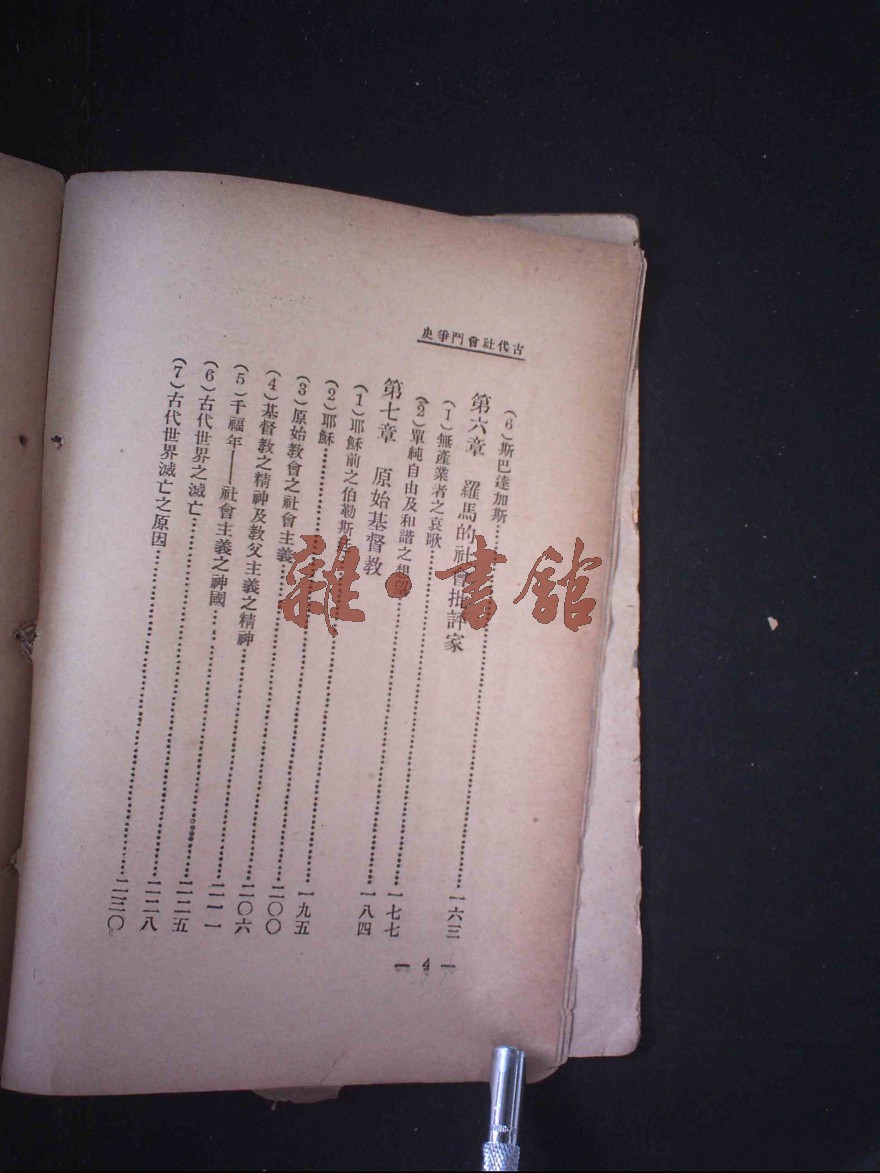 古代社會鬥爭史
(6)斯巴達加斯……一六三
第六章 羅馬的社會批評家
(1)無產業者之哀歌……一七七
(2)單純自由及和諧之想望……一八四
第七章 原始基督教
(1)耶穌前之伯勒斯……一九五
(2)耶穌……二〇〇
(3)原始教會之社會主義……二〇六
(4)基督教之精神及教父主義之精神……二一一
(5)千福年——社會主義之神國……二二五
(6)古代世界之滅亡……二二八
(7)古代世界滅亡之原因……二三〇
— 4 —
雜·書館